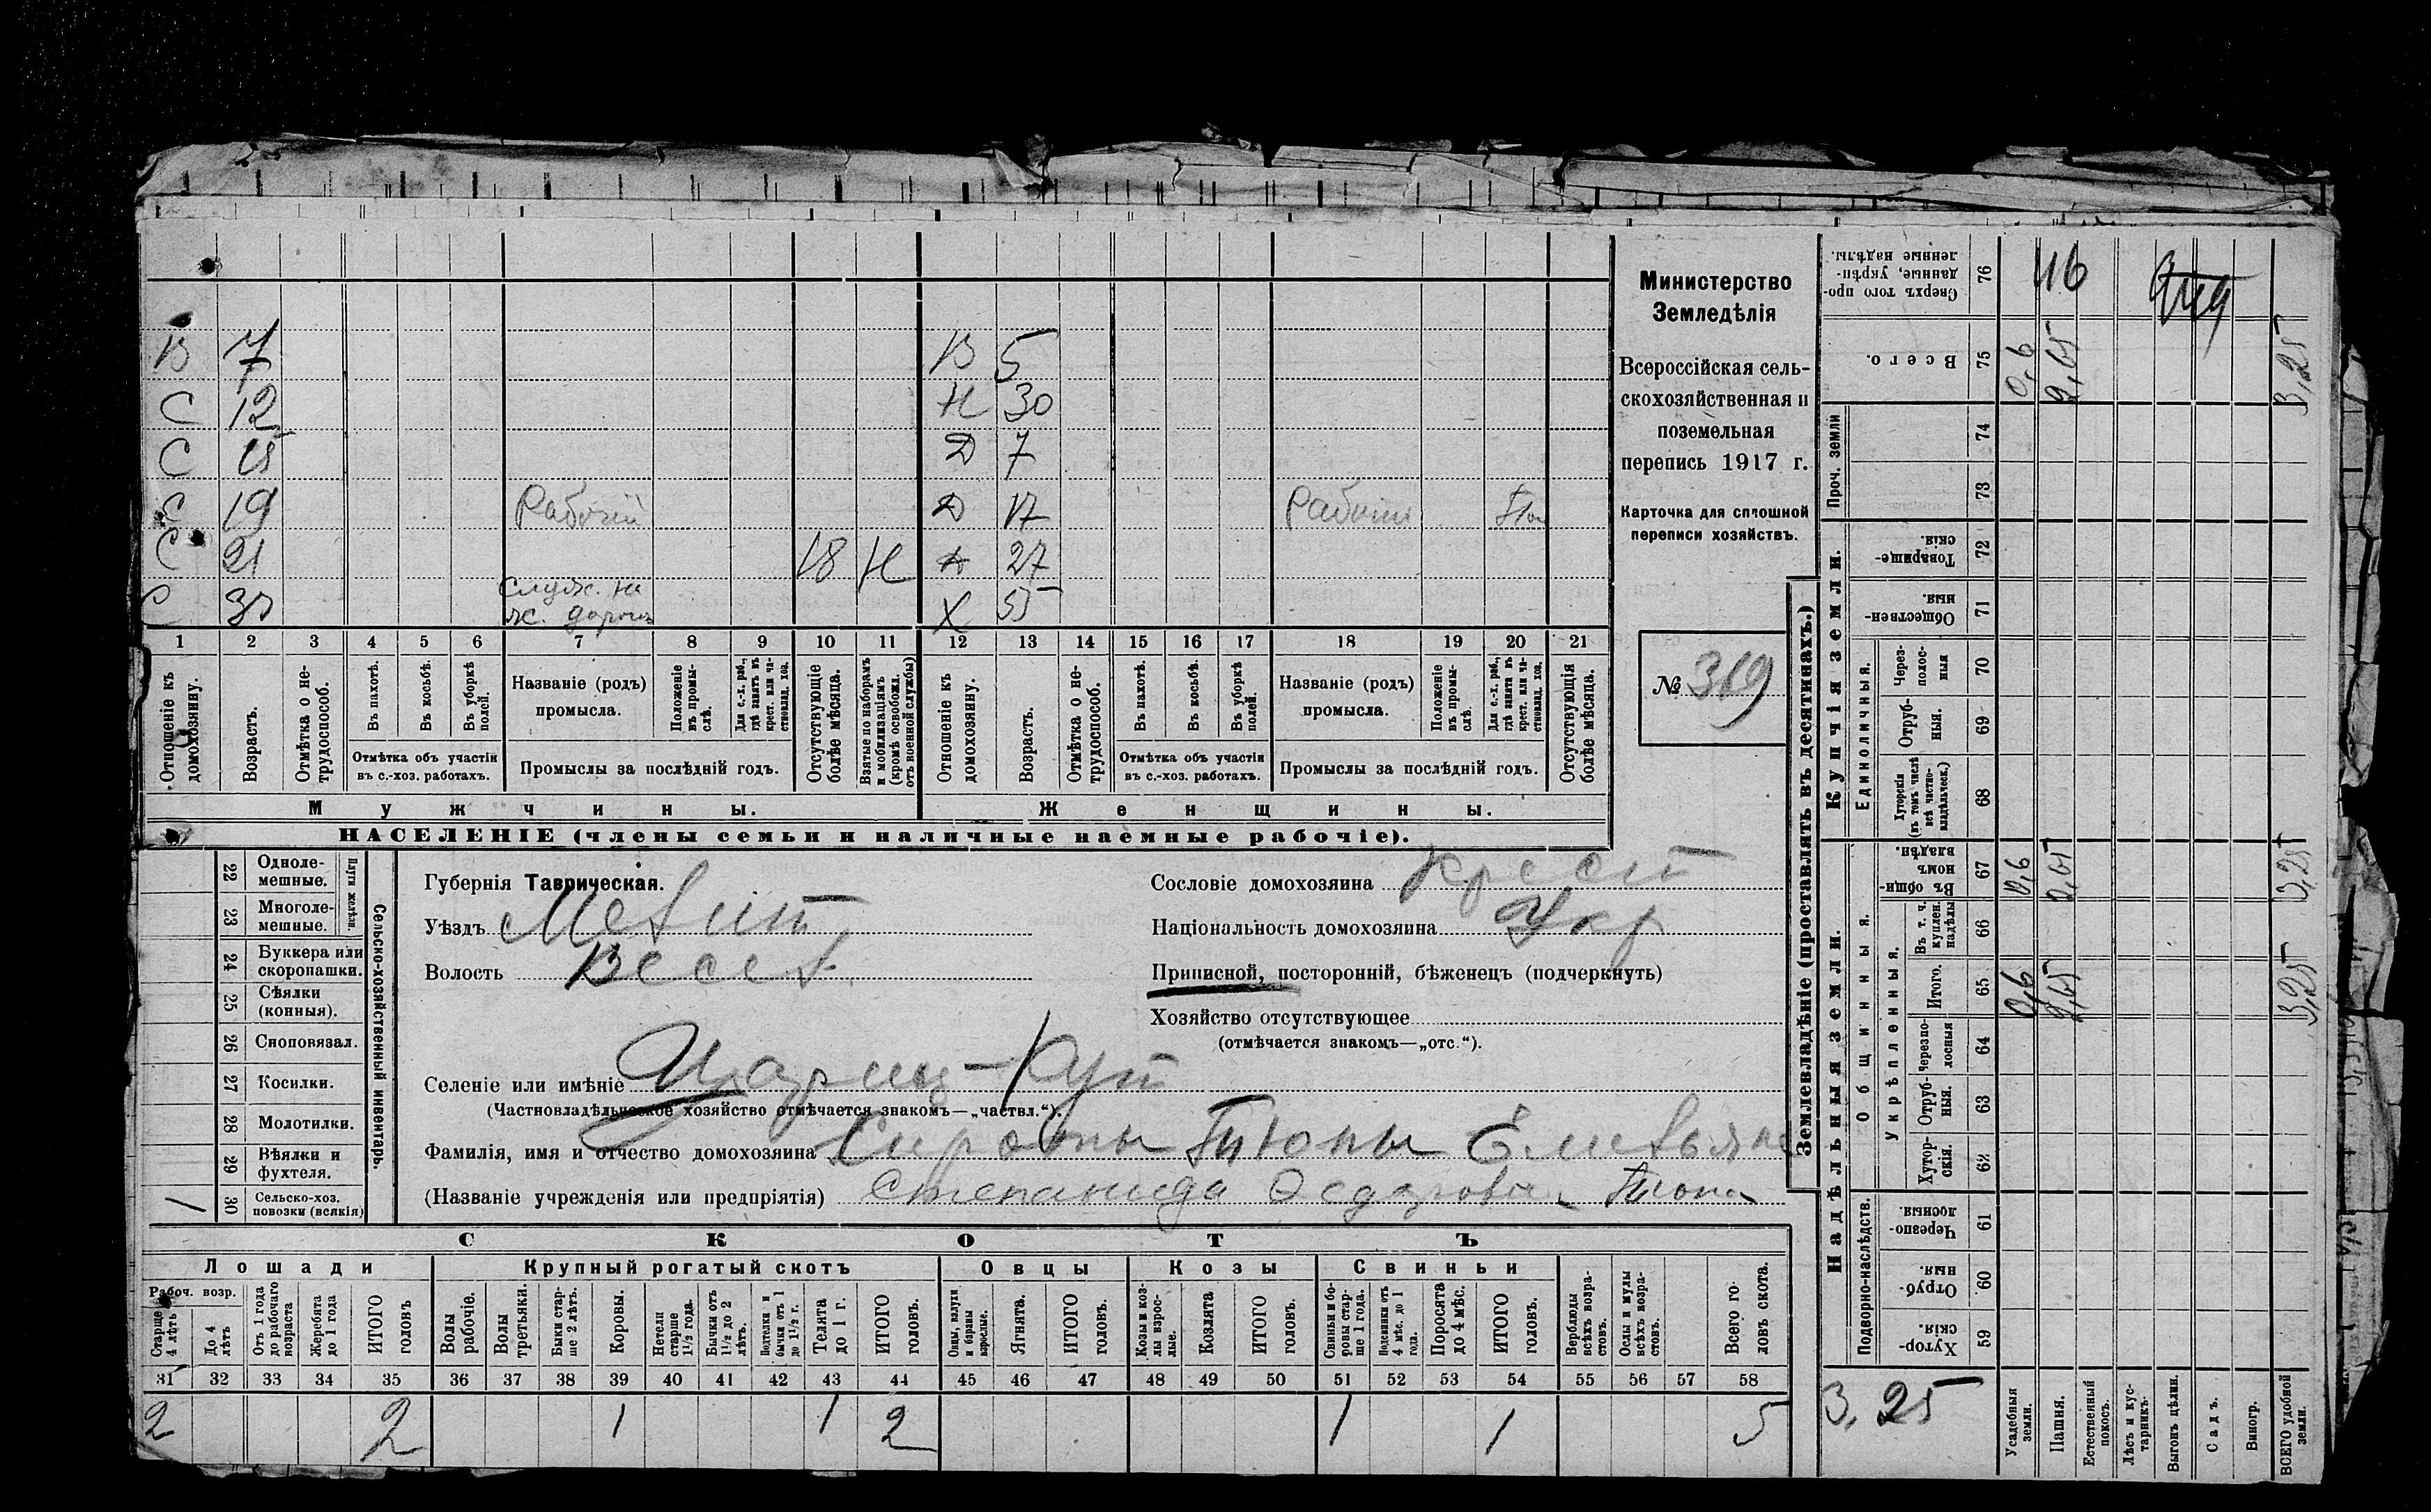 В 7 В 5
С 12 Н 30
С 15 Д 7
С 19 Рабочий Д 17 Рабочи
С 21 18 Н 27
С служ. на ж. дороги Х 55
1 2 3 4 5 6 7 8 9 10 11 12 13 14 15 16 17 18 19 20 21
Отношеніе къ домохозяину.
Возрастъ.
Отмѣтка о не-трудоспособ.
Въ пахотѣ.
Въ косьбѣ.
Въ уборкѣ полей.
Отмѣтка объ участіи
въ с.-хоз. работахъ.
Названіе (родъ)
промысла.
Положеніе въ промы-слѣ.
Для с.-х. раб., гдѣ занятъ въ крест. или ча-стновлад. хоз.
Промыслы за послѣдній годъ.
Отсутствующіе болѣе мѣсяца.
Взятые по наборамъ и мобилизаціямъ (кромѣ освобожд. отъ военной службы)
Отношеніе къ домохозяину.
Возрастъ.
Отмѣтка о не-трудоспособ.
Въ пахотѣ.
Въ косьбѣ.
Въ уборкѣ полей.
Отмѣтка объ участіи
въ с.-хоз. работахъ.
Названіе (родъ)
промысла.
Положеніе въ промы-слѣ.
Для с.-х. раб., гдѣ занята въ крест. или ча-стновлад. хоз.
Промыслы за послѣдній годъ.
Отсутствующія болѣе мѣсяца.
Мужчины.
Женщины.
НАСЕЛЕНІЕ (члены семьи и наличные наемные рабочіе).
Министерство
Земледѣлія
Всероссійская сель-
скохозяйственная и
поземельная
перепись 1917 г.
Карточка для сплошной
переписи хозяйствъ.
№ 319
22 Одноле-мешные.
23 Многоле-мешные.
Плуги желѣзн.
24 Буккера или скоропашки.
25 Сѣялки (конныя).
26 Сноповязал.
27 Косилки.
28 Молотилки.
29 Вѣялки и фухтеля.
1 30 Сельско-хоз. повозки (всякія)
Сельско-хозяйственный инвентарь.
Губернія Таврическая.
Уѣздъ Мелит
Волость Весел.
Селеніе или имѣніе Цариц-Кут
(Частновладѣльческое хозяйство отмѣчается знакомъ—„частвл.“).
Фамилія, имя и отчество домохозяина Тюпы Емельяна
(Названіе учрежденія или предпріятія) Степанида Федоровна Тюпа
Сословіе домохозяина крест
Національность домохозяина Укр
Приписной, посторонній, бѣженецъ (подчеркнуть)
Хозяйство отсутствующее
(отмѣчается знакомъ—„отс.“).
СКОТЪ
Лошади
Крупный рогатый скотъ
Овцы
Козы
Свиньи
Рабоч. возр.
Старше 4 лѣтъ
До 4 лѣтъ
Отъ 1 года до рабочаго возраста
Жеребята до 1 года
ИТОГО головъ
Волы рабочіе.
Волы третьяки.
Быки стар-ше 2 лѣтъ.
Коровы.
Нетели старше 1½ года.
Бычки отъ 1½ до 2 лѣтъ.
Подтелки и бычки отъ 1 до 1½ г.
Телята до 1 г.
ИТОГО головъ.
Овцы, валухи и бараны взрослые.
Ягнята.
ИТОГО головъ.
Козы и коз-лы взрос-лые.
Козлята
ИТОГО головъ.
Свиньи и бо-ровы стар-ше 1 года.
Подсвинки отъ 4 мѣс. до 1 года.
Поросята до 4 мѣс.
ИТОГО головъ.
Верблюды всѣхъ возра-стовъ.
Ослы и мулы всѣхъ возра-стовъ.
Всего го-ловъ скота.
31 32 33 34 35 36 37 38 39 40 41 42 43 44 45 46 47 48 49 50 51 52 53 54 55 56 57 58
2 2 1 1 2 1 1 5
Землевладѣніе (проставлять въ десятинахъ.)
Надѣльныя земли.
Купчія земли.
Проч. земли
Подворно-наслѣдств.
Общинныя.
Укрѣпленныя.
Единоличныя.
Сверхъ того про-данные, укрѣп-ленные надѣлы. 76 116
Всего. 75 0,6 2,65 3,25
74
73
Товарище-скія. 72
Обществен-ныя. 71
Через-полос-ныя 70
Отруб-ныя. 69
Хуторскія (въ томъ числѣ всѣ частно-владѣльческ.) 68
Въ общин-номъ владѣн. 67 0,6 2,65 3,25
Въ т. ч. куплен. надѣлы 66
Итого. 65 0,6 2,65 3,25
Черезпо-лосныя 64
Отруб-ныя. 63
Хутор-скія. 62
Черезпо-лосныя. 61
Отруб-ныя. 60
Хутор-скія. 59
3,25
Усадебныя земли.
Пашня.
Естественный покосъ.
Лѣсъ и кус-тарникъ.
Выгонъ цѣлин.
Садъ.
Виногр.
ВСЕГО удобной земли.